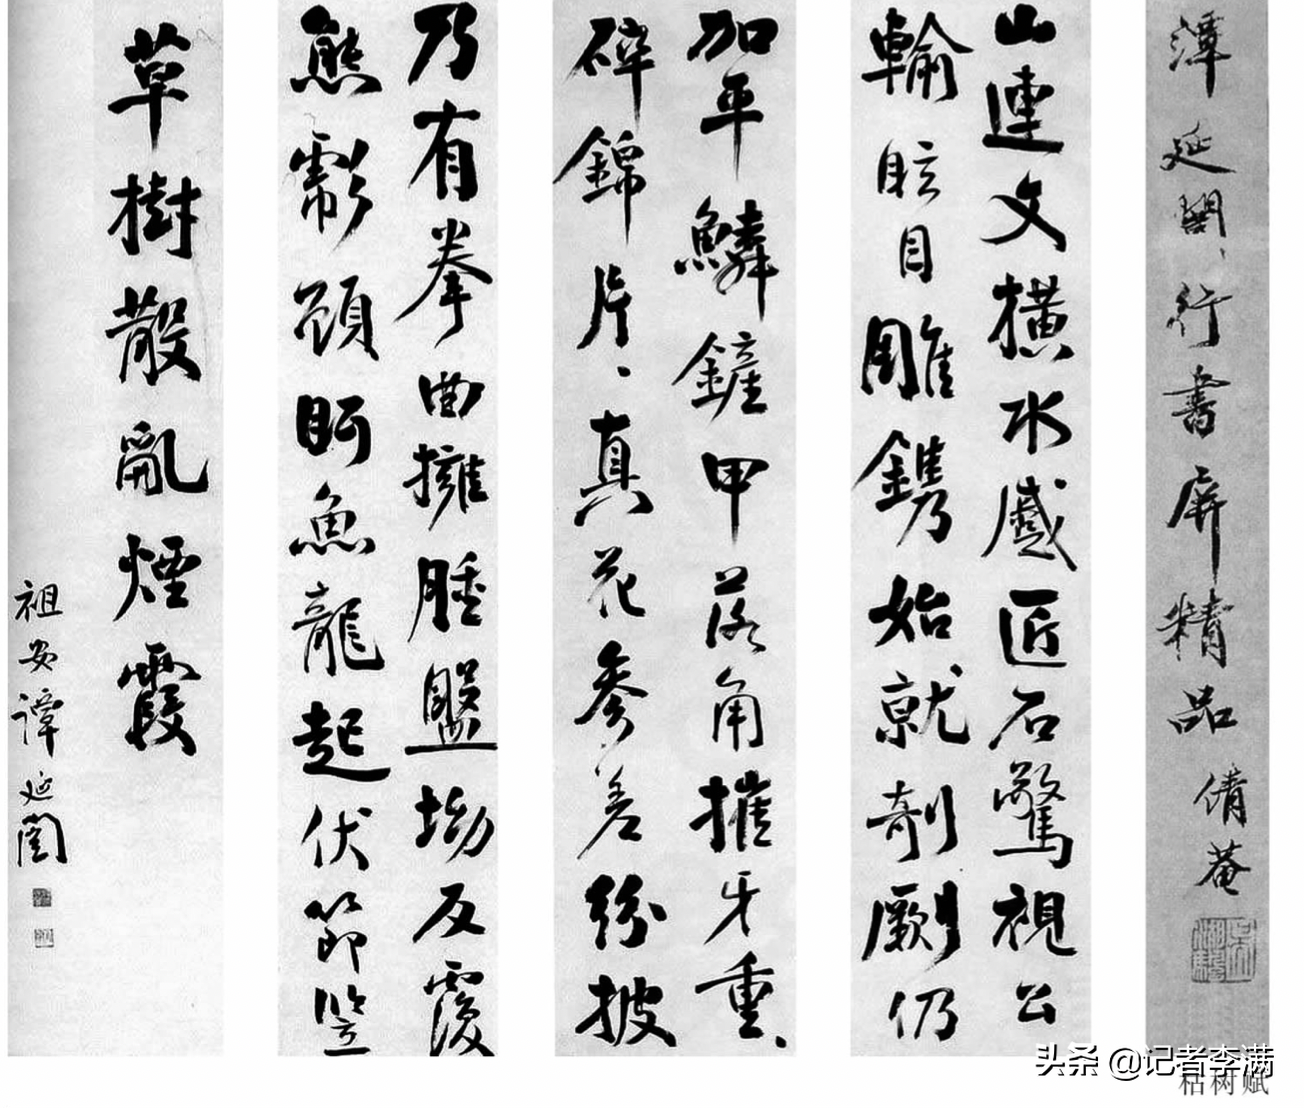 譚延闓、行書屏精品 倩菴
山連文橫水蹙匠石驚視公
輸眩目雕鐫始就剞劂仍
加平鱗鏟甲落角摧牙重、
碎錦片、真花參差紛披
乃有拳曲擁腫盤坳反覆
熊彪顧眄魚龍起伏節豎
草樹散亂煙霞
祖安譚延闓
头条 @记者李满
枯树赋